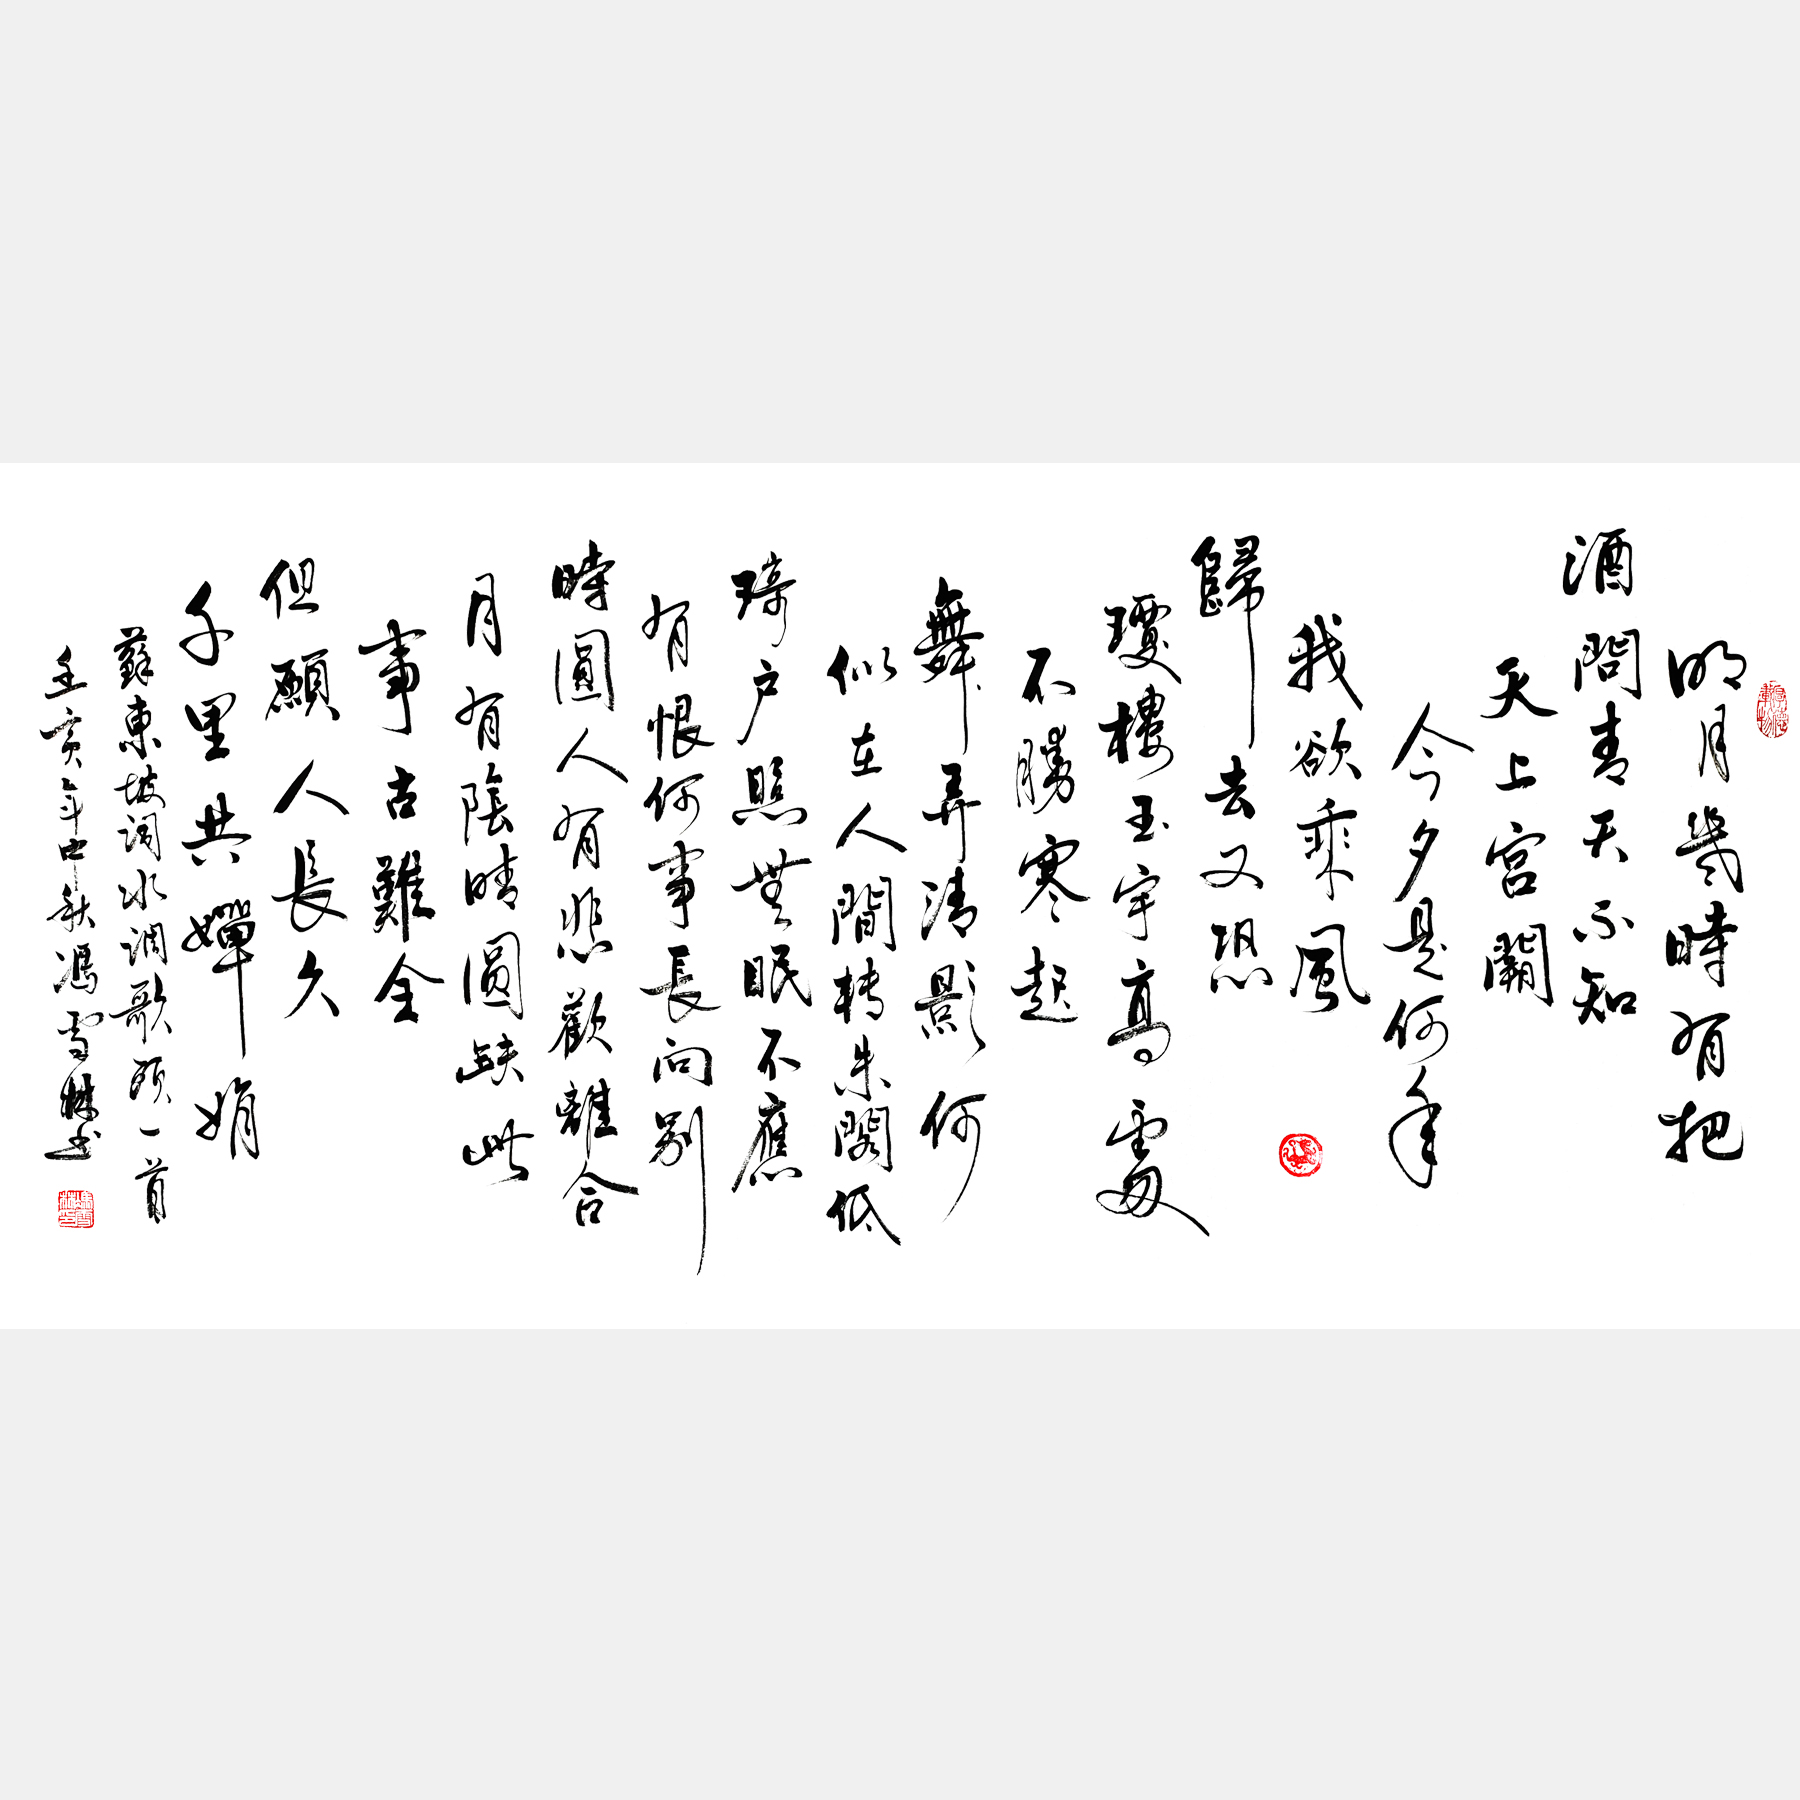 明月幾時有把
酒問青天不知
天上宮闕
今夕是何年
我欲乘風
歸去又恐
瓊樓玉宇高處
不勝寒起
舞弄清影何
似在人間轉朱閣低
琦戶照無眠不應
有恨何事長向别
時圓人有悲歡離合
月有陰晴圓缺此
事古難全
但願人長久
千里共嬋娟
蘇東坡詞水調歌頭一首
壬寅年中秋馮雪林书